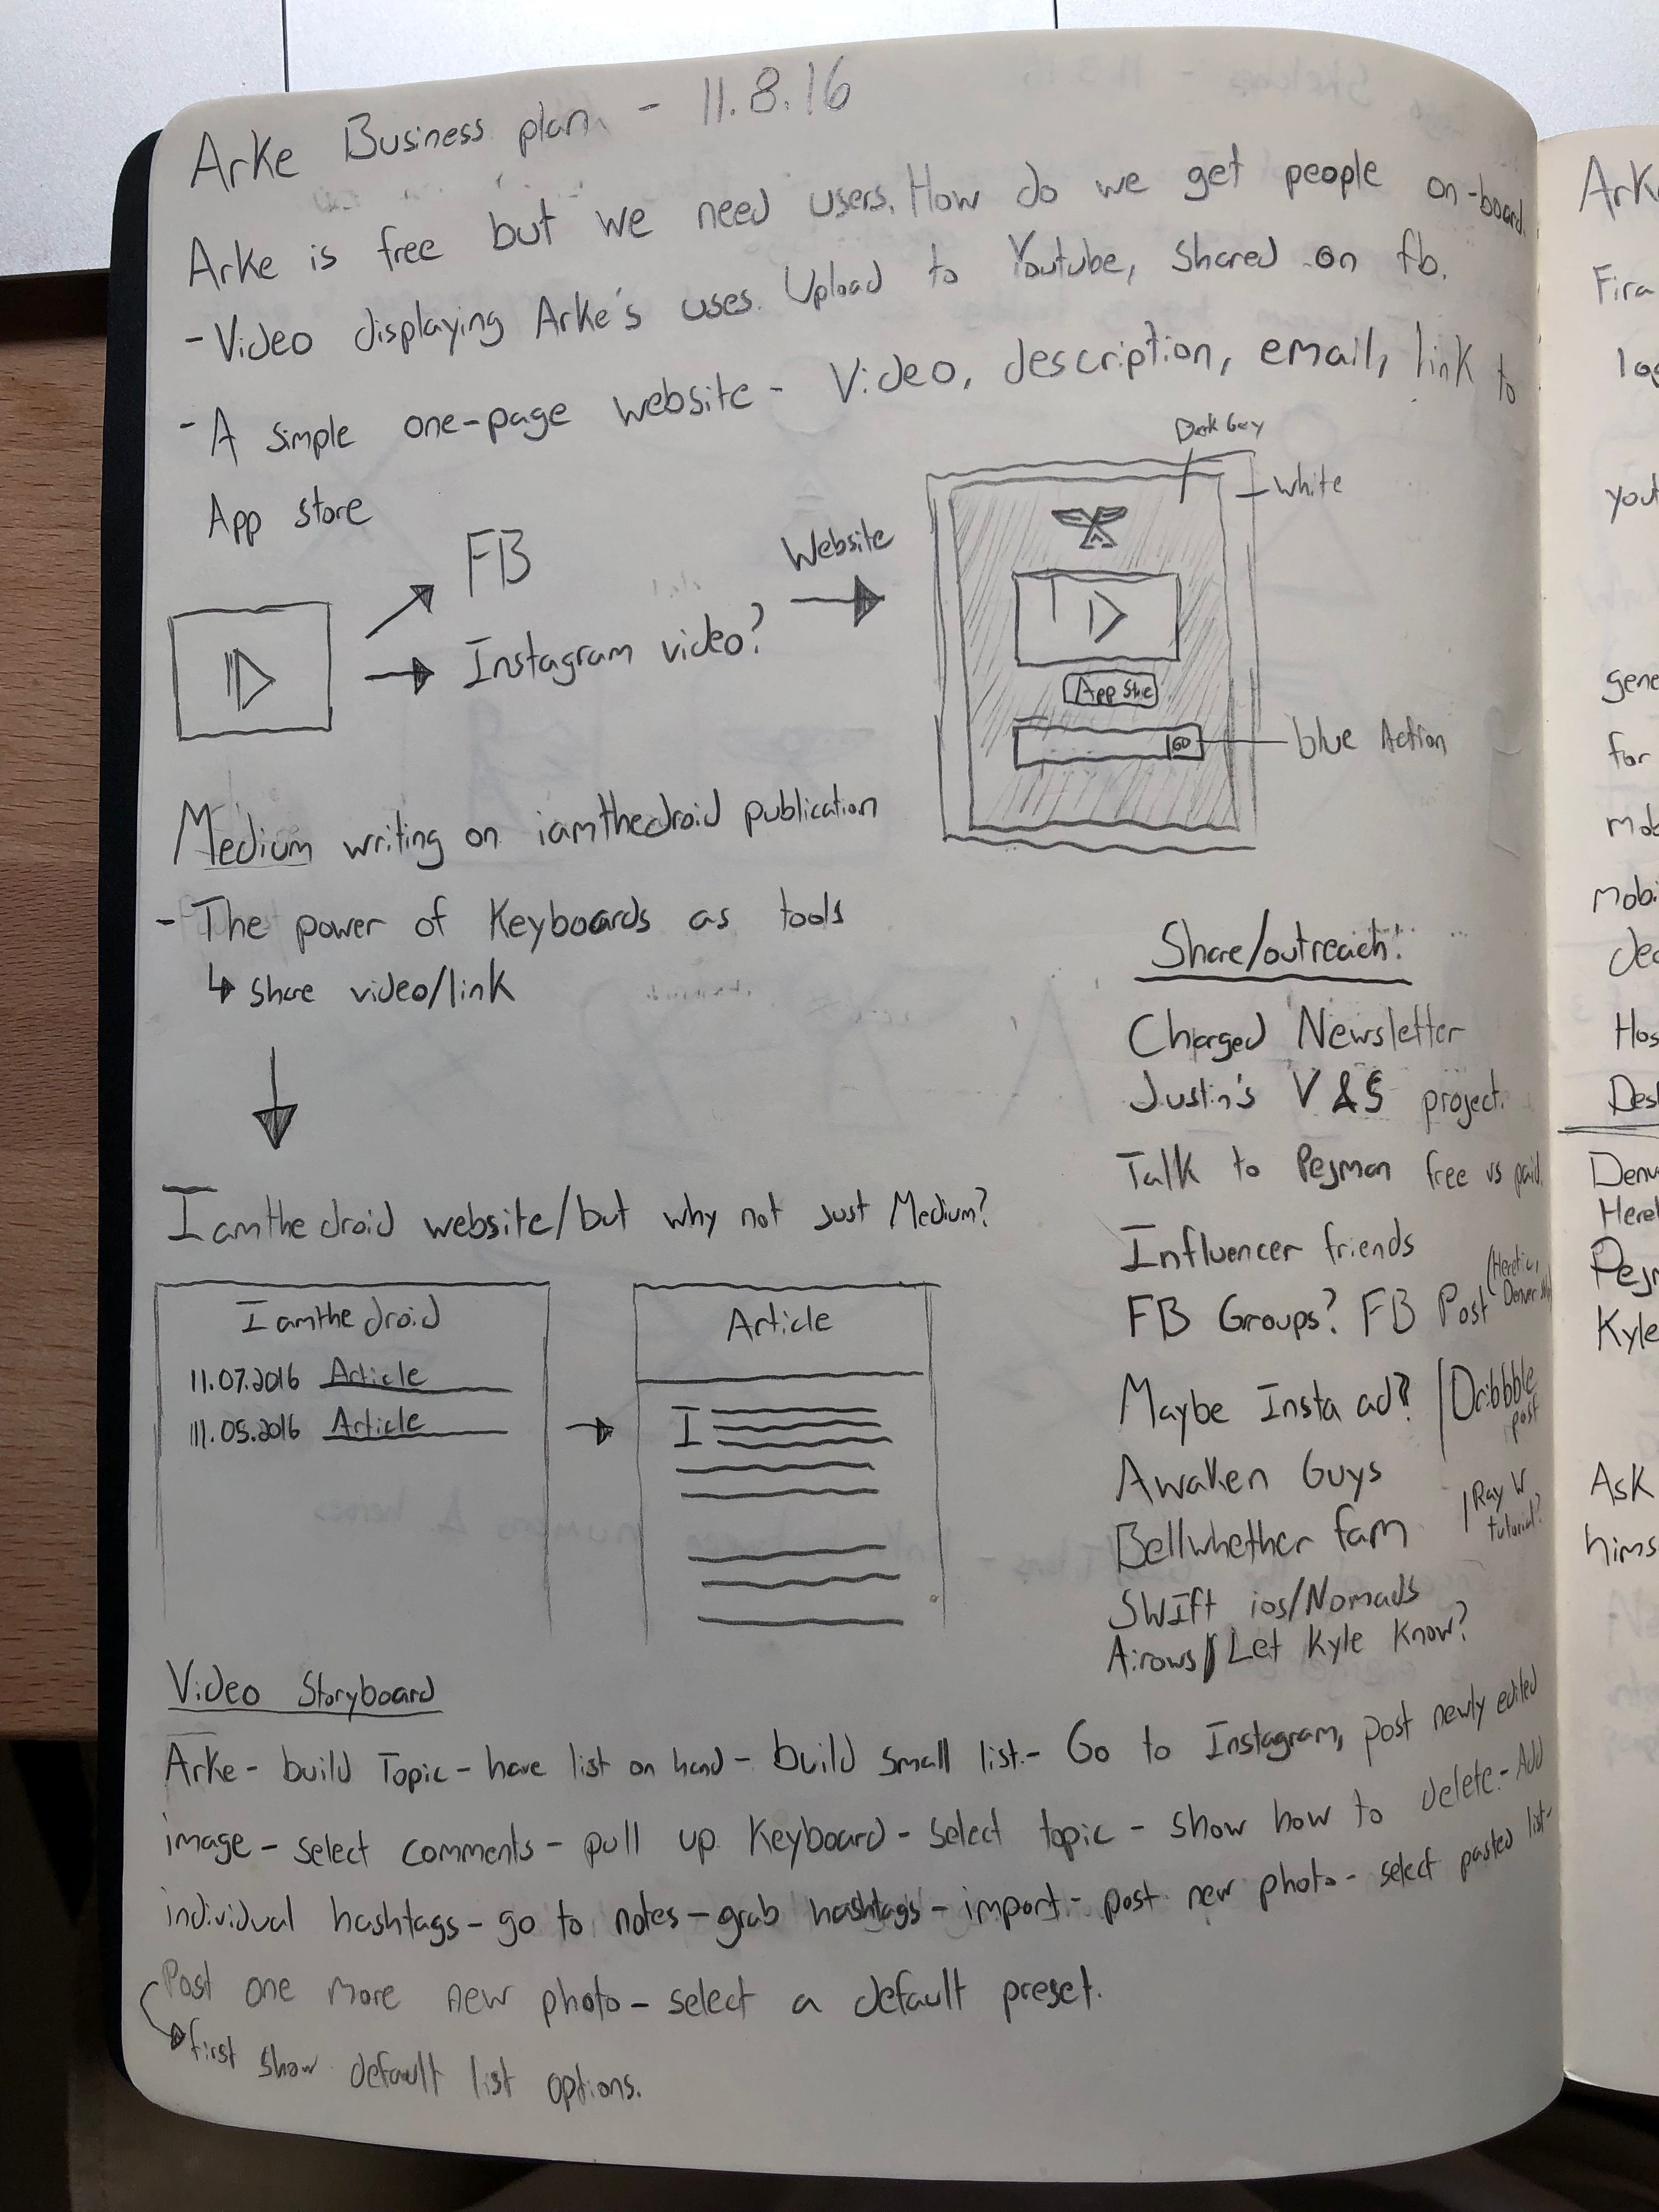 Arke Business plan - 11.8.16
Arke is free but we need users. How do we get people on-board.
- Video displaying Arke's uses. Upload to Youtube, shared on fb.
- A simple one-page website - Video, description, email, link to
App store
FB
Instagram video?
Website
Dark Grey
White
App Store
GO
blue Action
Medium writing on iamthedroid publication
- The power of Keyboards as tools
↳ share video/link
Iamthedroid website/but why not just Medium?
Iamthedroid
11.07.2016 Article
11.05.2016 Article
Article
I
Share/outreach!
Charged Newsletter
Justin's V&S project.
Talk to Pejman free vs paid.
Influencer friends
FB Groups? FB Post
Maybe Insta ad? | Dribbble post
Awaken Guys
Bellwhether fam | Ray W tutorial?
SWIft ios/Nomads
Airows/Let Kyle Know?
Video Storyboard
Arke - build Topic - have list on hand - build small list. - Go to Instagram, post newly edited
image - select comments - pull up Keyboard - Select topic - show how to delete. - Add
individual hashtags - go to notes - grab hashtags - import - post new photo - select pasted list -
Post one more new photo - select a default preset.
first show default list options.
Arke
Fira
you
gene
for
mob
mobi
Hos
Des
Denv
Heret
Pejm
Kyle
Ask
hims